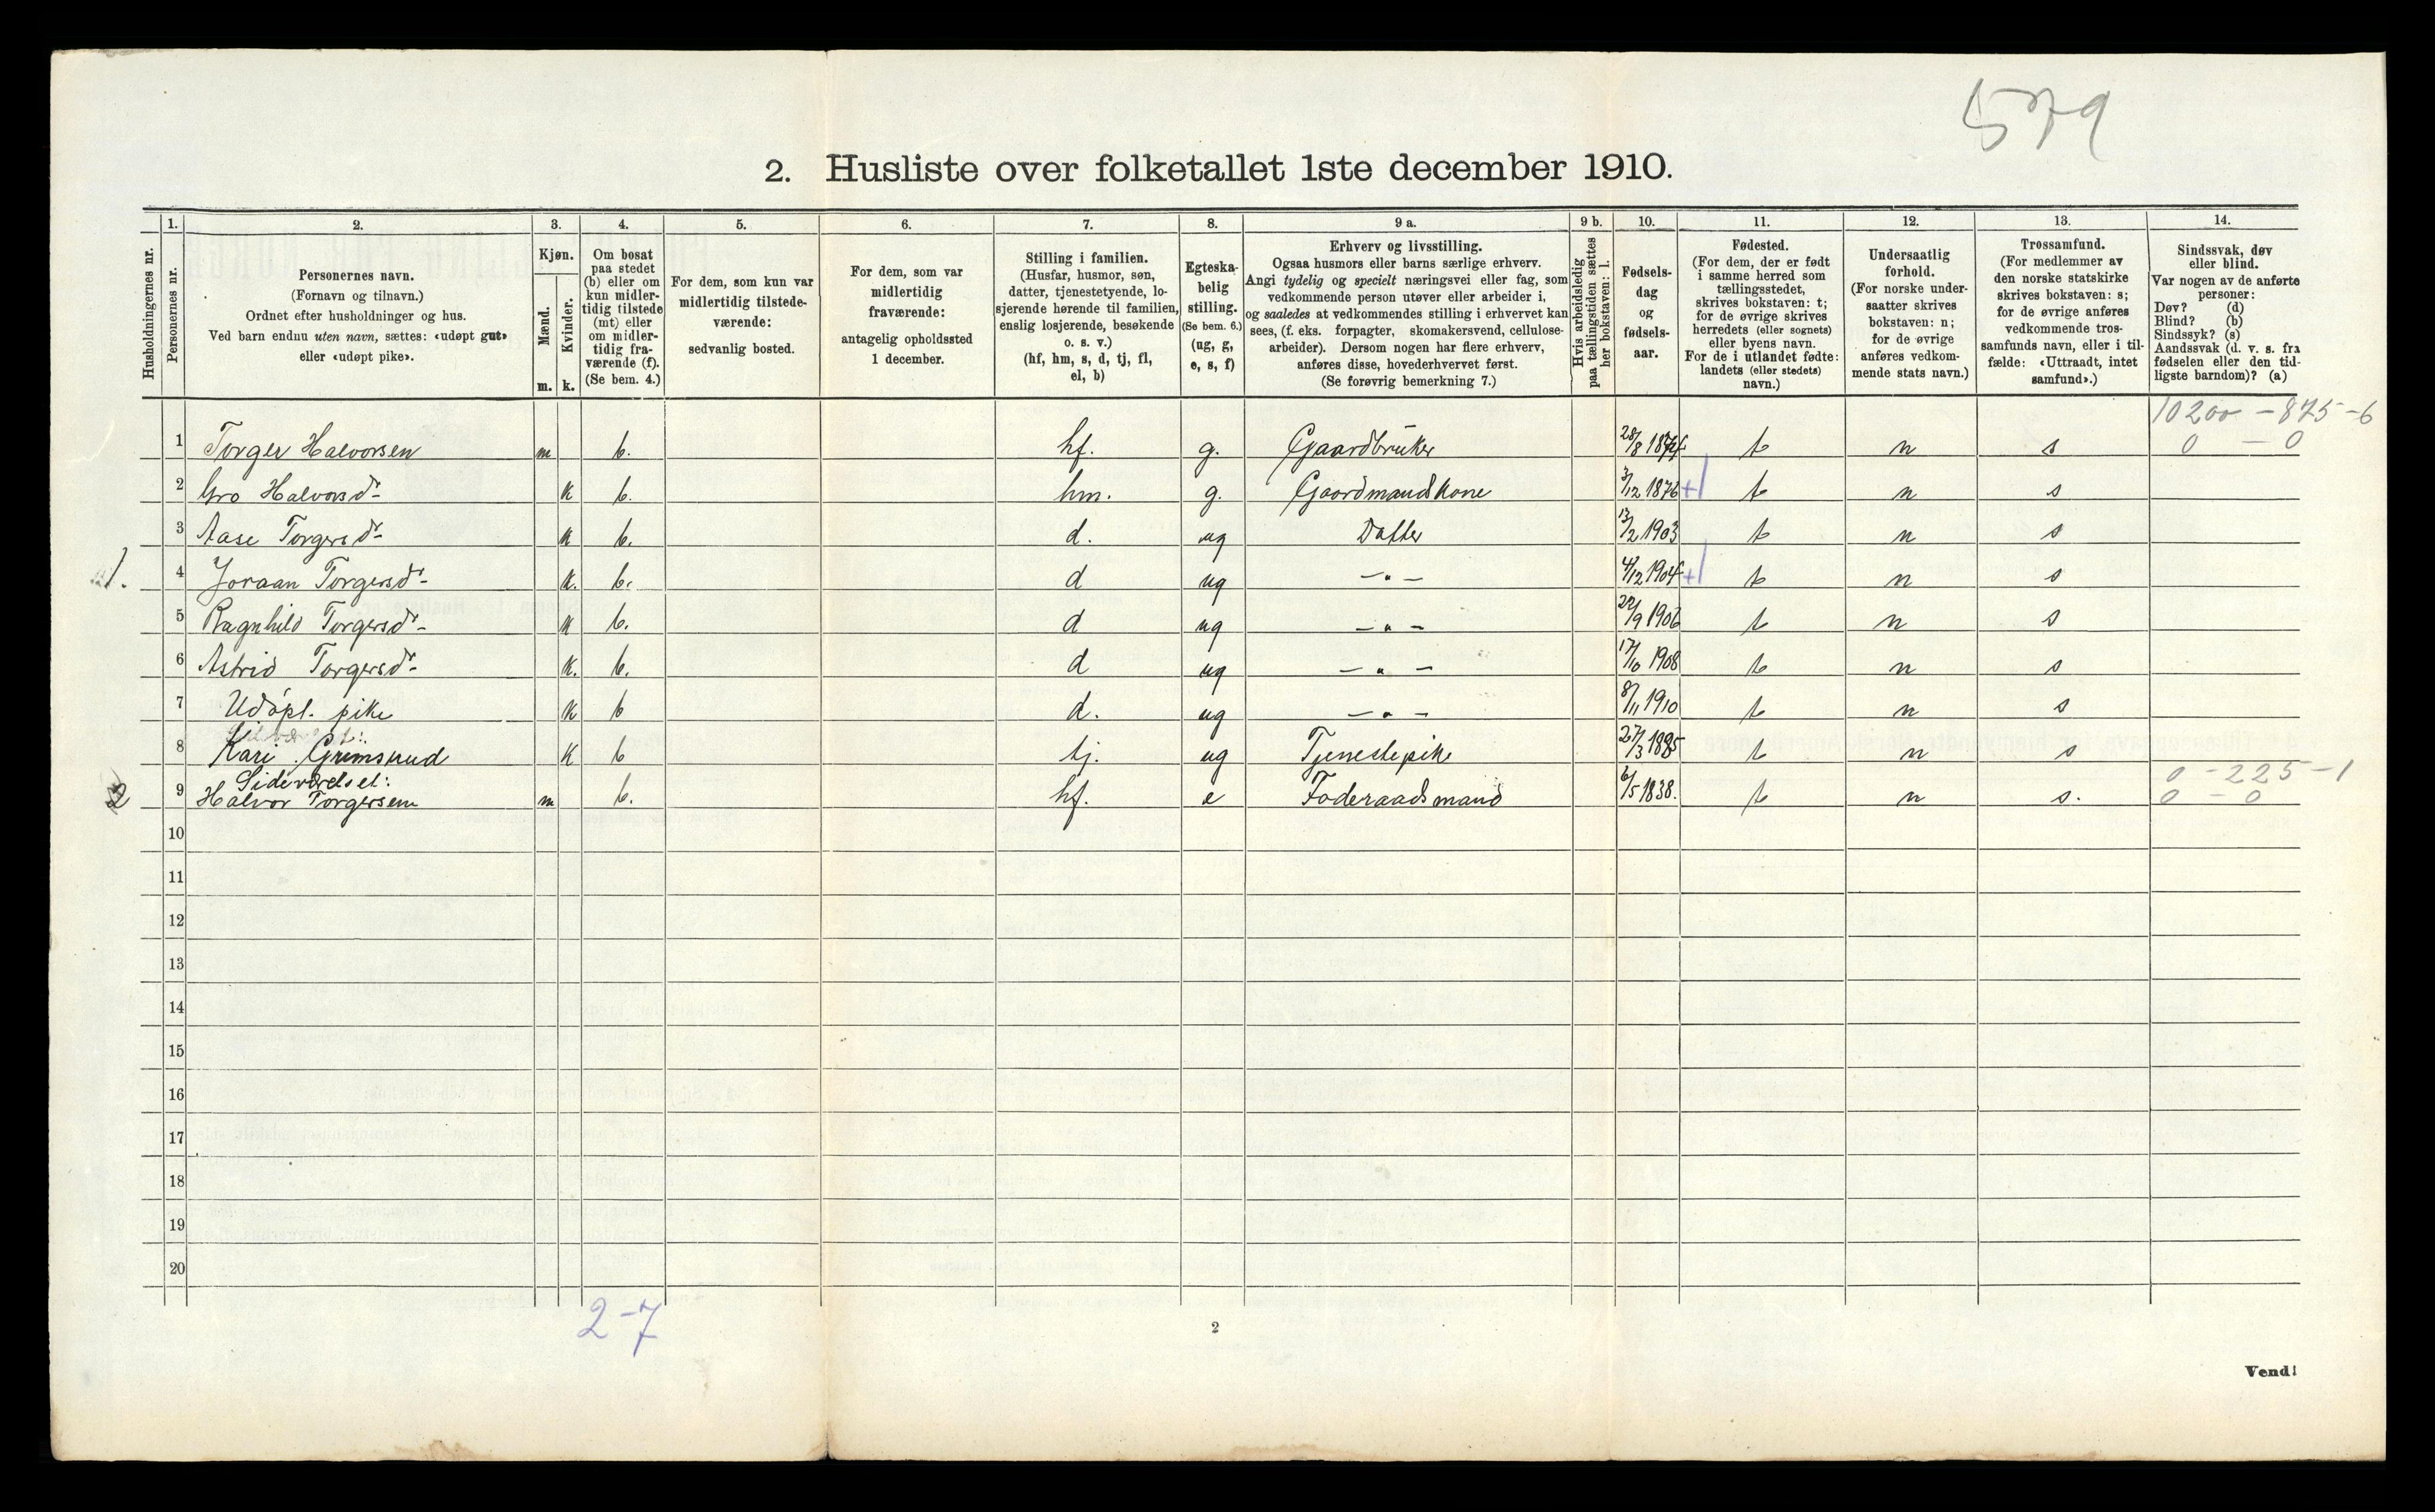 579
2. Husliste over folketallet 1ste december 1910.
Husholdningernes nr.
1. Personernes nr.
2. Personernes navn. (Fornavn og tilnavn.) Ordnet efter husholdninger og hus. Ved barn endnu uten navn, sættes: «udøpt gut» eller «udøpt pike».
3. Kjøn. Mænd. m. Kvinder. k.
4. Om bosat paa stedet (b) eller om kun midlertidig tilstede (mt) eller om midlertidig fraværende (f). (Se bem. 4.)
5. For dem, som kun var midlertidig tilstedeværende: sedvanlig bosted.
6. For dem, som var midlertidig fraværende: antagelig opholdssted 1 december.
7. Stilling i familien. (Husfar, husmor, søn, datter, tjenestetyende, losjerende hørende til familien, enslig losjerende, besøkende o. s. v.) (hf, hm, s, d, tj, fl, el, b)
8. Egteskabelig stilling. (Se bem. 6.) (ug, g, e, s, f)
9 a. Erhverv og livsstilling. Ogsaa husmors eller barns særlige erhverv. Angi tydelig og specielt næringsvei eller fag, som vedkommende person utøver eller arbeider i, og saaledes at vedkommendes stilling i erhvervet kan sees, (f. eks. forpagter, skomakersvend, cellulosearbeider). Dersom nogen har flere erhverv, anføres disse, hovederhvervet først. (Se forøvrig bemerkning 7.)
9 b. Hvis arbeidsledig paa tællingstiden sættes her bokstaven: l.
10. Fødselsdag og fødselsaar.
11. Fødested. (For dem, der er født i samme herred som tællingsstedet, skrives bokstaven: t; for de øvrige skrives herredets (eller sognets) eller byens navn. For de i utlandet fødte: landets (eller stedets) navn.)
12. Undersaatlig forhold. (For norske undersaatter skrives bokstaven: n; for de øvrige anføres vedkommende stats navn.)
13. Trossamfund. (For medlemmer av den norske statskirke skrives bokstaven: s; for de øvrige anføres vedkommende trossamfunds navn, eller i tilfælde: «Uttraadt, intet samfund».)
14. Sindssvak, døv eller blind. Var nogen av de anførte personer: Døv? (d) Blind? (b) Sindssyk? (s) Aandssvak (d. v. s. fra fødselen eller den tidligste barndom)? (a)
10200 - 875 - 6
1 Torger Halvorsen m b. hf. g. Gaardbruker 28/8 1874 t n s 0 - 0
2 Gro Halvorsdr k b. hm. g. Gaardmandskone 3/12 1876 + t n s
3 Aase Torgersdr k b. d. ug Datter 13/2 1903 t n s
1. 4 Joraan Torgersdr k. b. d ug - " - 4/12 1904 + t n s
5 Ragnhild Torgersdr k b. d ug - " - 22/9 1906 t n s
6 Astrid Torgersdr k. b. d ug - " - 17/10 1908 t n s
7 Udøpt. pike k b d. ug - " - 8/11 1910 t n s
8 Kari Grimsrud k b tj. ug Tjenestepike 27/3 1895 t n s
Sideværelset: 0 - 225 - 1
2 9 Halvor Torgersen m b. hf. e Føderaadsmand 6/5 1838. t n s. 0 - 0
10
11
12
13
14
15
16
17
18
19
20
2-7
2
Vend!